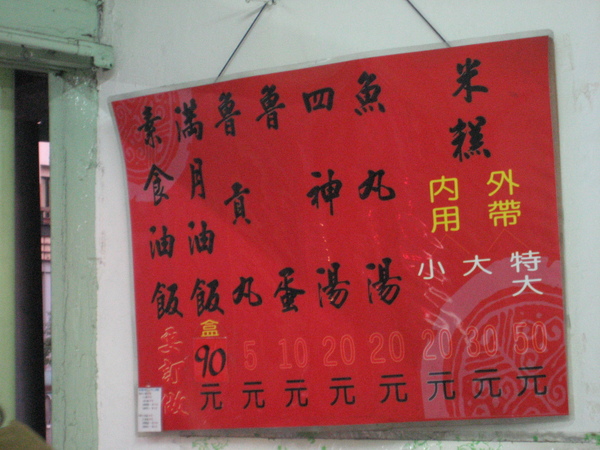 米糕
外帶
內用
特大 50元
大 30元
小 20元
魚丸湯 20元
四神湯 20元
魯蛋 10元
魯貢丸 5元
滿月油飯 盒 90元
素食油飯 委訂做